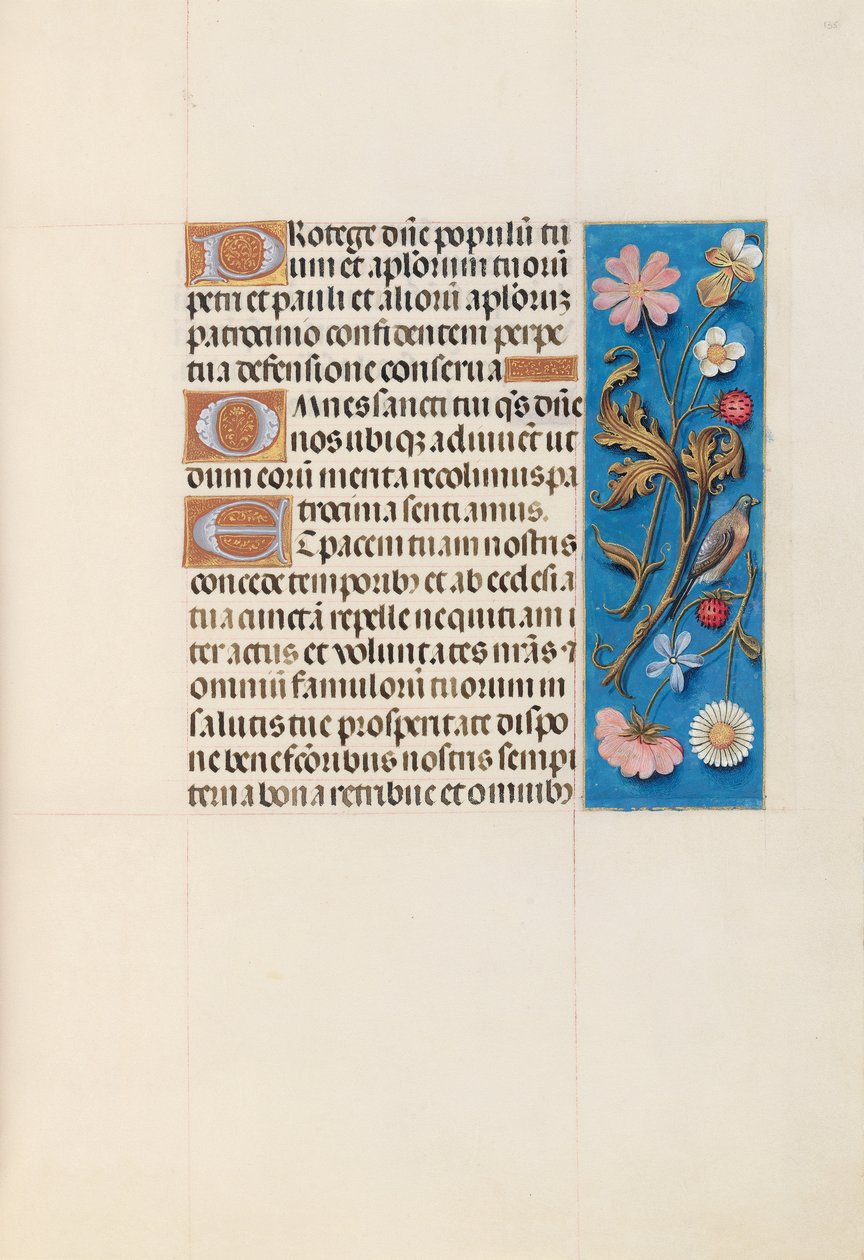 135
PRotege dn̄e populū tu
um et apl'orum tuorū
petri et pauli et aliorū apl'oruꝫ
patrocinio confidentem perpe
tua defensione conserua
OMnes sancti tui qs̄ dn̄e
nos ubiqꝫ adiuuēt ut
dum eorū merita recolimus pa
trocinia sentiamus.
Et pacem tuam nostris
concede temporibꝰ et ab ecclesia
tua cunctā repelle nequitiam i
ter actus et voluntates nrās ⁊
omniū famulorū tuorum in
salutis tue prosperitate dispo
ne benefcōribus nostris sempi
terna bona retribue et omnibꝰ